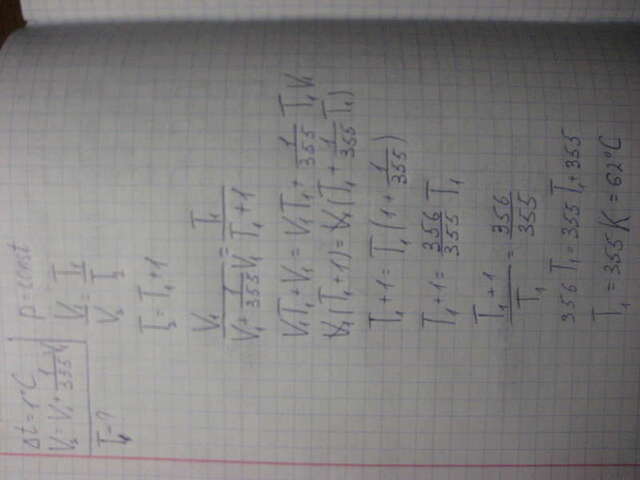 Δt = 1°C
V₂ = V₁ + 1/355 V₁
T₁ = ?
p = const
V₁/V₂ = T₁/T₂
T₂ = T₁ + 1
V₁/(V₁ + 1/355 V₁) = T₁/(T₁ + 1)
V₁T₁ + V₁ = V₁T₁ + 1/355 T₁V₁
V₁(T₁ + 1) = V₁(T₁ + 1/355 T₁)
T₁ + 1 = T₁(1 + 1/355)
T₁ + 1 = 356/355 T₁
(T₁ + 1)/T₁ = 356/355
356 T₁ = 355 T₁ + 355
T₁ = 355 K = 62°C